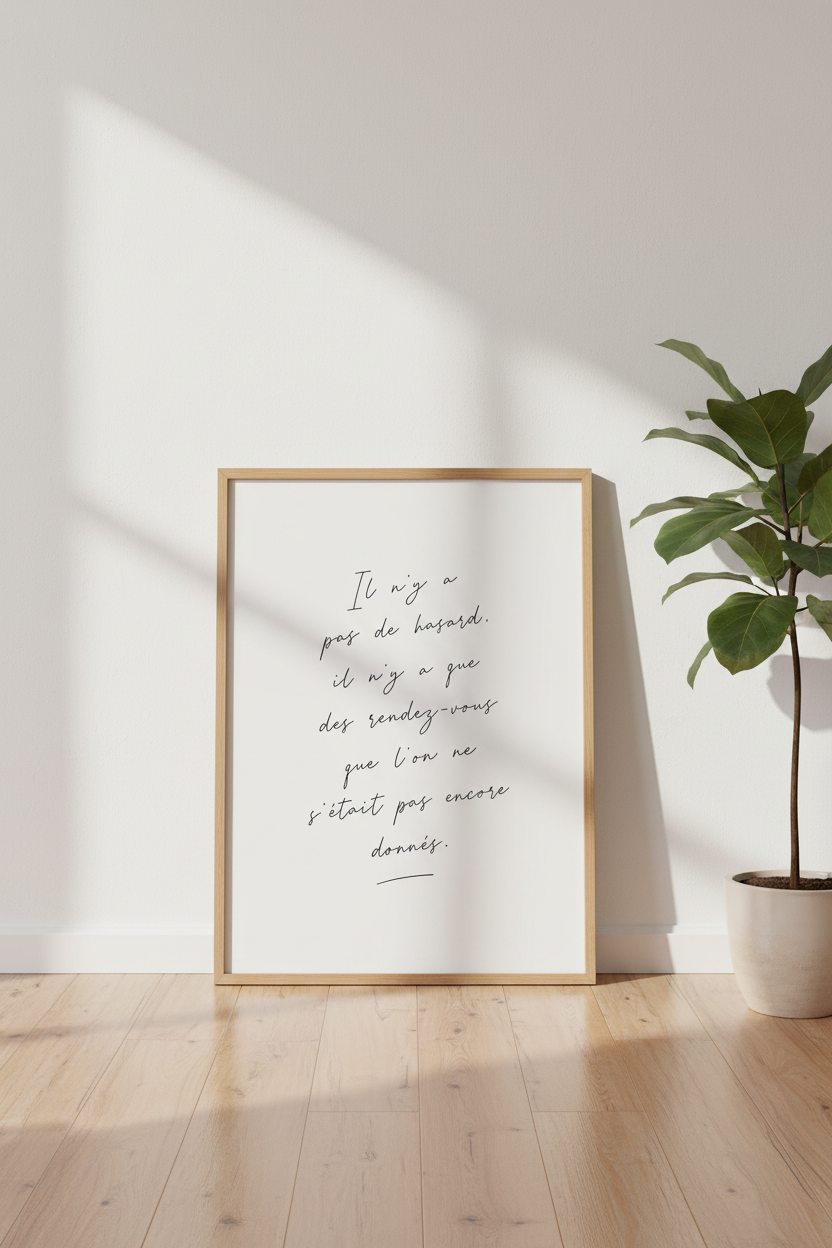 Il n'y a
pas de hasard.
il n'y a que
des rendez-vous
que l'on ne
s'était pas encore
donnés.